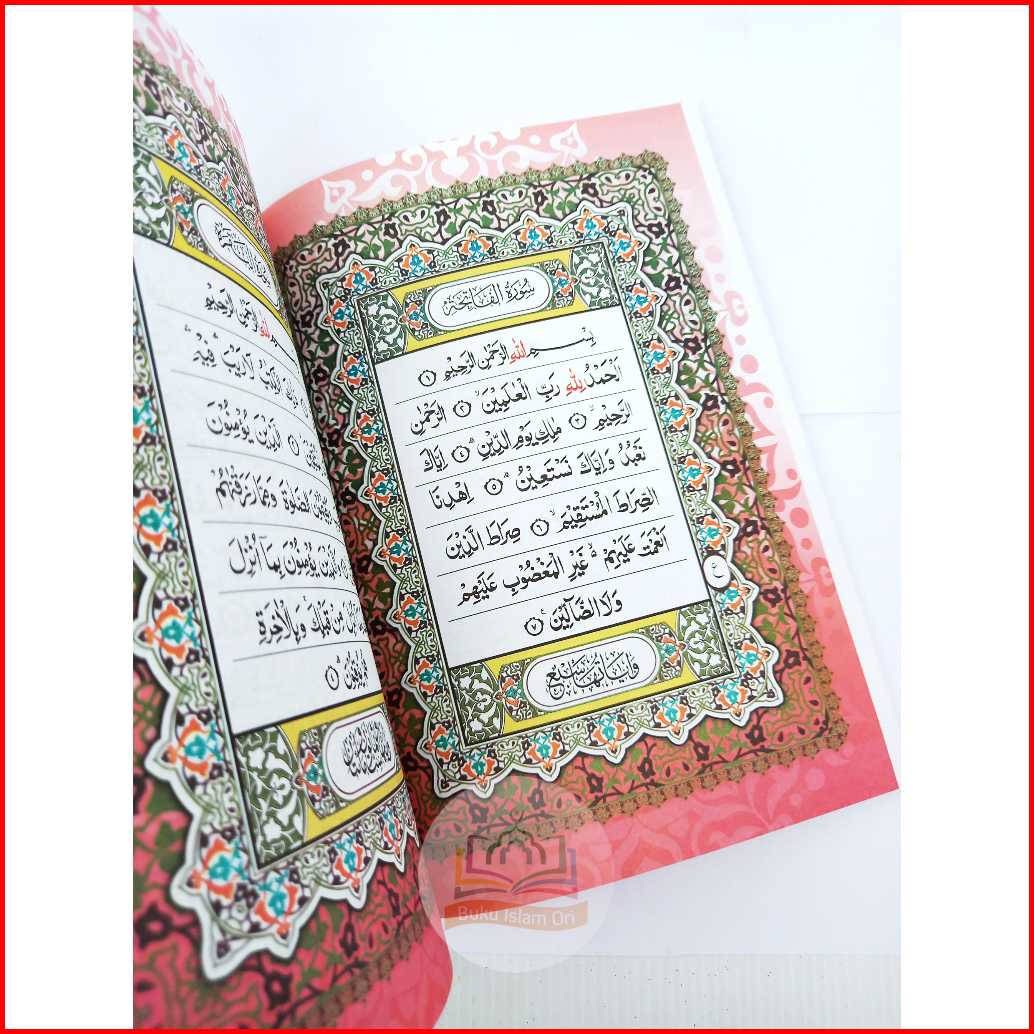 سُورَةُ الْفَاتِحَةِ
بِسْمِ اللهِ الرَّحْمٰنِ الرَّحِيْمِ ١
اَلْحَمْدُ لِلّٰهِ رَبِّ الْعٰلَمِيْنَ ۙ ٢ الرَّحْمٰنِ
الرَّحِيْمِ ۙ ٣ مٰلِكِ يَوْمِ الدِّيْنِ ۗ ٤ اِيَّاكَ
نَعْبُدُ وَاِيَّاكَ نَسْتَعِيْنُ ۗ ٥ اِهْدِنَا
الصِّرَاطَ الْمُسْتَقِيْمَ ۙ ٦ صِرَاطَ الَّذِيْنَ
اَنْعَمْتَ عَلَيْهِمْ ۙ غَيْرِ الْمَغْضُوْبِ عَلَيْهِمْ
وَلَا الضَّآلِّيْنَ ۚ ٧
وَاٰيَاتُهَا سَبْعٌ
٤
الرَّحْمٰنِ الرَّحِيْمِ
الْكِتٰبُ لَا رَيْبَ ۛ فِيْهِ ۛ
الَّذِيْنَ يُؤْمِنُوْنَ
الصَّلٰوةَ وَمِمَّا رَزَقْنٰهُمْ
يُؤْمِنُوْنَ بِمَآ اُنْزِلَ
مِنْ قَبْلِكَ وَبِالْاٰخِرَةِ
Buku Islam Ori